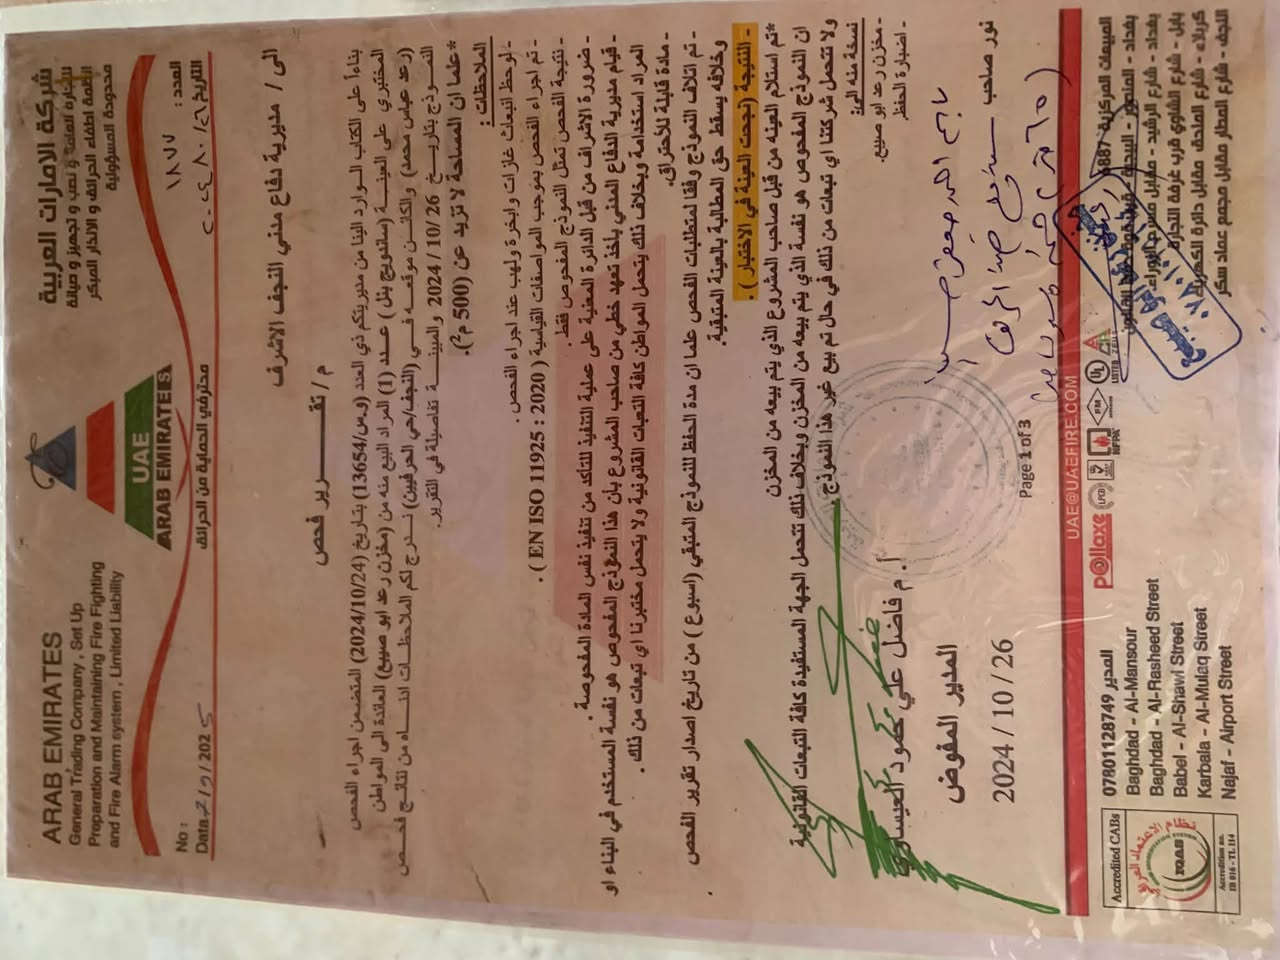 شركة الامارات العربية
للتجارة العامة و نصب و تجهيز و صيانة
انظمة اطفاء الحرائق و الانذار المبكر
محدودة المسؤولية
ARAB EMIRATES
General Trading Company, Set Up
Preparation and Maintaining Fire Fighting
and Fire Alarm system, Limited Liability
UAE
ARAB EMIRATES
محترفي الحماية من الحرائق
العدد : ١٨٧٧
التاريخ
No :
Data
الى / مديرية دفاع مدني النجف الاشرف
م/ تقـــــرير فحص
بناءاً على الكتاب الوارد الينا من مديريتكم ذي العدد (و.س/13654) بتاريخ (2024/10/24) المتضمن اجراء الفحص
المختبري على العينة (ساندويج بنل) عدد (1) المراد البيع منه من (مخزن رعد ابو صيبع) العائدة الى المواطن
(رعد عباس محمد) والكائن موقعه في (النجف/حي الحرفيين) ندرج لكم الملاحظات ادناه من نتائج فحص
النموذج بتاريخ 2024/10/26 والمبينة تفاصيله في التقرير.
*علما ان المساحة لا تزيد عن (500 م²).
الملاحظات :
- لوحظ انبعاث غازات وابخرة ولهب عند اجراء الفحص.
- تم اجراء الفحص بموجب المواصفات القياسية (EN ISO 11925 : 2020).
- نتيجة الفحص تمثل النموذج المفحوص فقط.
- ضرورة الاشراف من قبل الدائرة المعنية على عملية التنفيذ للتأكد من تنفيذ نفس المادة المفحوصة.
- قيام مديرية الدفاع المدني بأخذ تعهد خطي من صاحب المشروع بأن هذا النموذج المفحوص هو نفسة المستخدم في البناء او
المراد استخدامة وبخلاف ذلك يتحمل المواطن كافة التبعات القانونية ولا يتحمل مختبرنا اي تبعات من ذلك.
- مادة قابلة للأحتراق.
- تم اتلاف النموذج وفقا لمتطلبات الفحص علما ان مدة الحفظ للنموذج المتبقي (اسبوع) من تاريخ اصدار تقرير الفحص
وخلافه يسقط حق المطالبة بالعينة المتبقية.
- النتيجة (نجحت العينة في الاختبار).
*تم استلام العينه من قبل صاحب المشروع الذي يتم بيعه من المخزن
ان النموذج المفحوص هو نفسة الذي يتم بيعه من المخزن وبخلاف ذلك تتحمل الجهة المستفيدة كافة التبعات القانونية
ولا تتحمل شركتنا اي تبعات من ذلك في حال تم بيع غير هذا النموذج.
نسخة منه الى:
- مخزن رعد ابو صيبع.
- اضبارة الحفظ
أ. م فاضل علي حمود العيساوي
المدير المفوض
2024 / 10 / 26
نور صاحب
Page 1 of 3
UAE@UAEFIRE.COM
المدير 07801128749
Baghdad - Al-Mansour
Baghdad - Al-Rasheed Street
Babel - Al-Shawl Street
Karbala - Al-Mulaq Street
Najaf - Airport Street
Pollaxe
LPCB
NFPA
FM
UL
LISTED
Accredited CABs
IQAS
Accreditation no.
IB 016 - TL 114
كربلاء - شارع الملحق - مقابل دائرة الكهرباء
النجف - شارع المطار مقابل مجمع عماد سكر